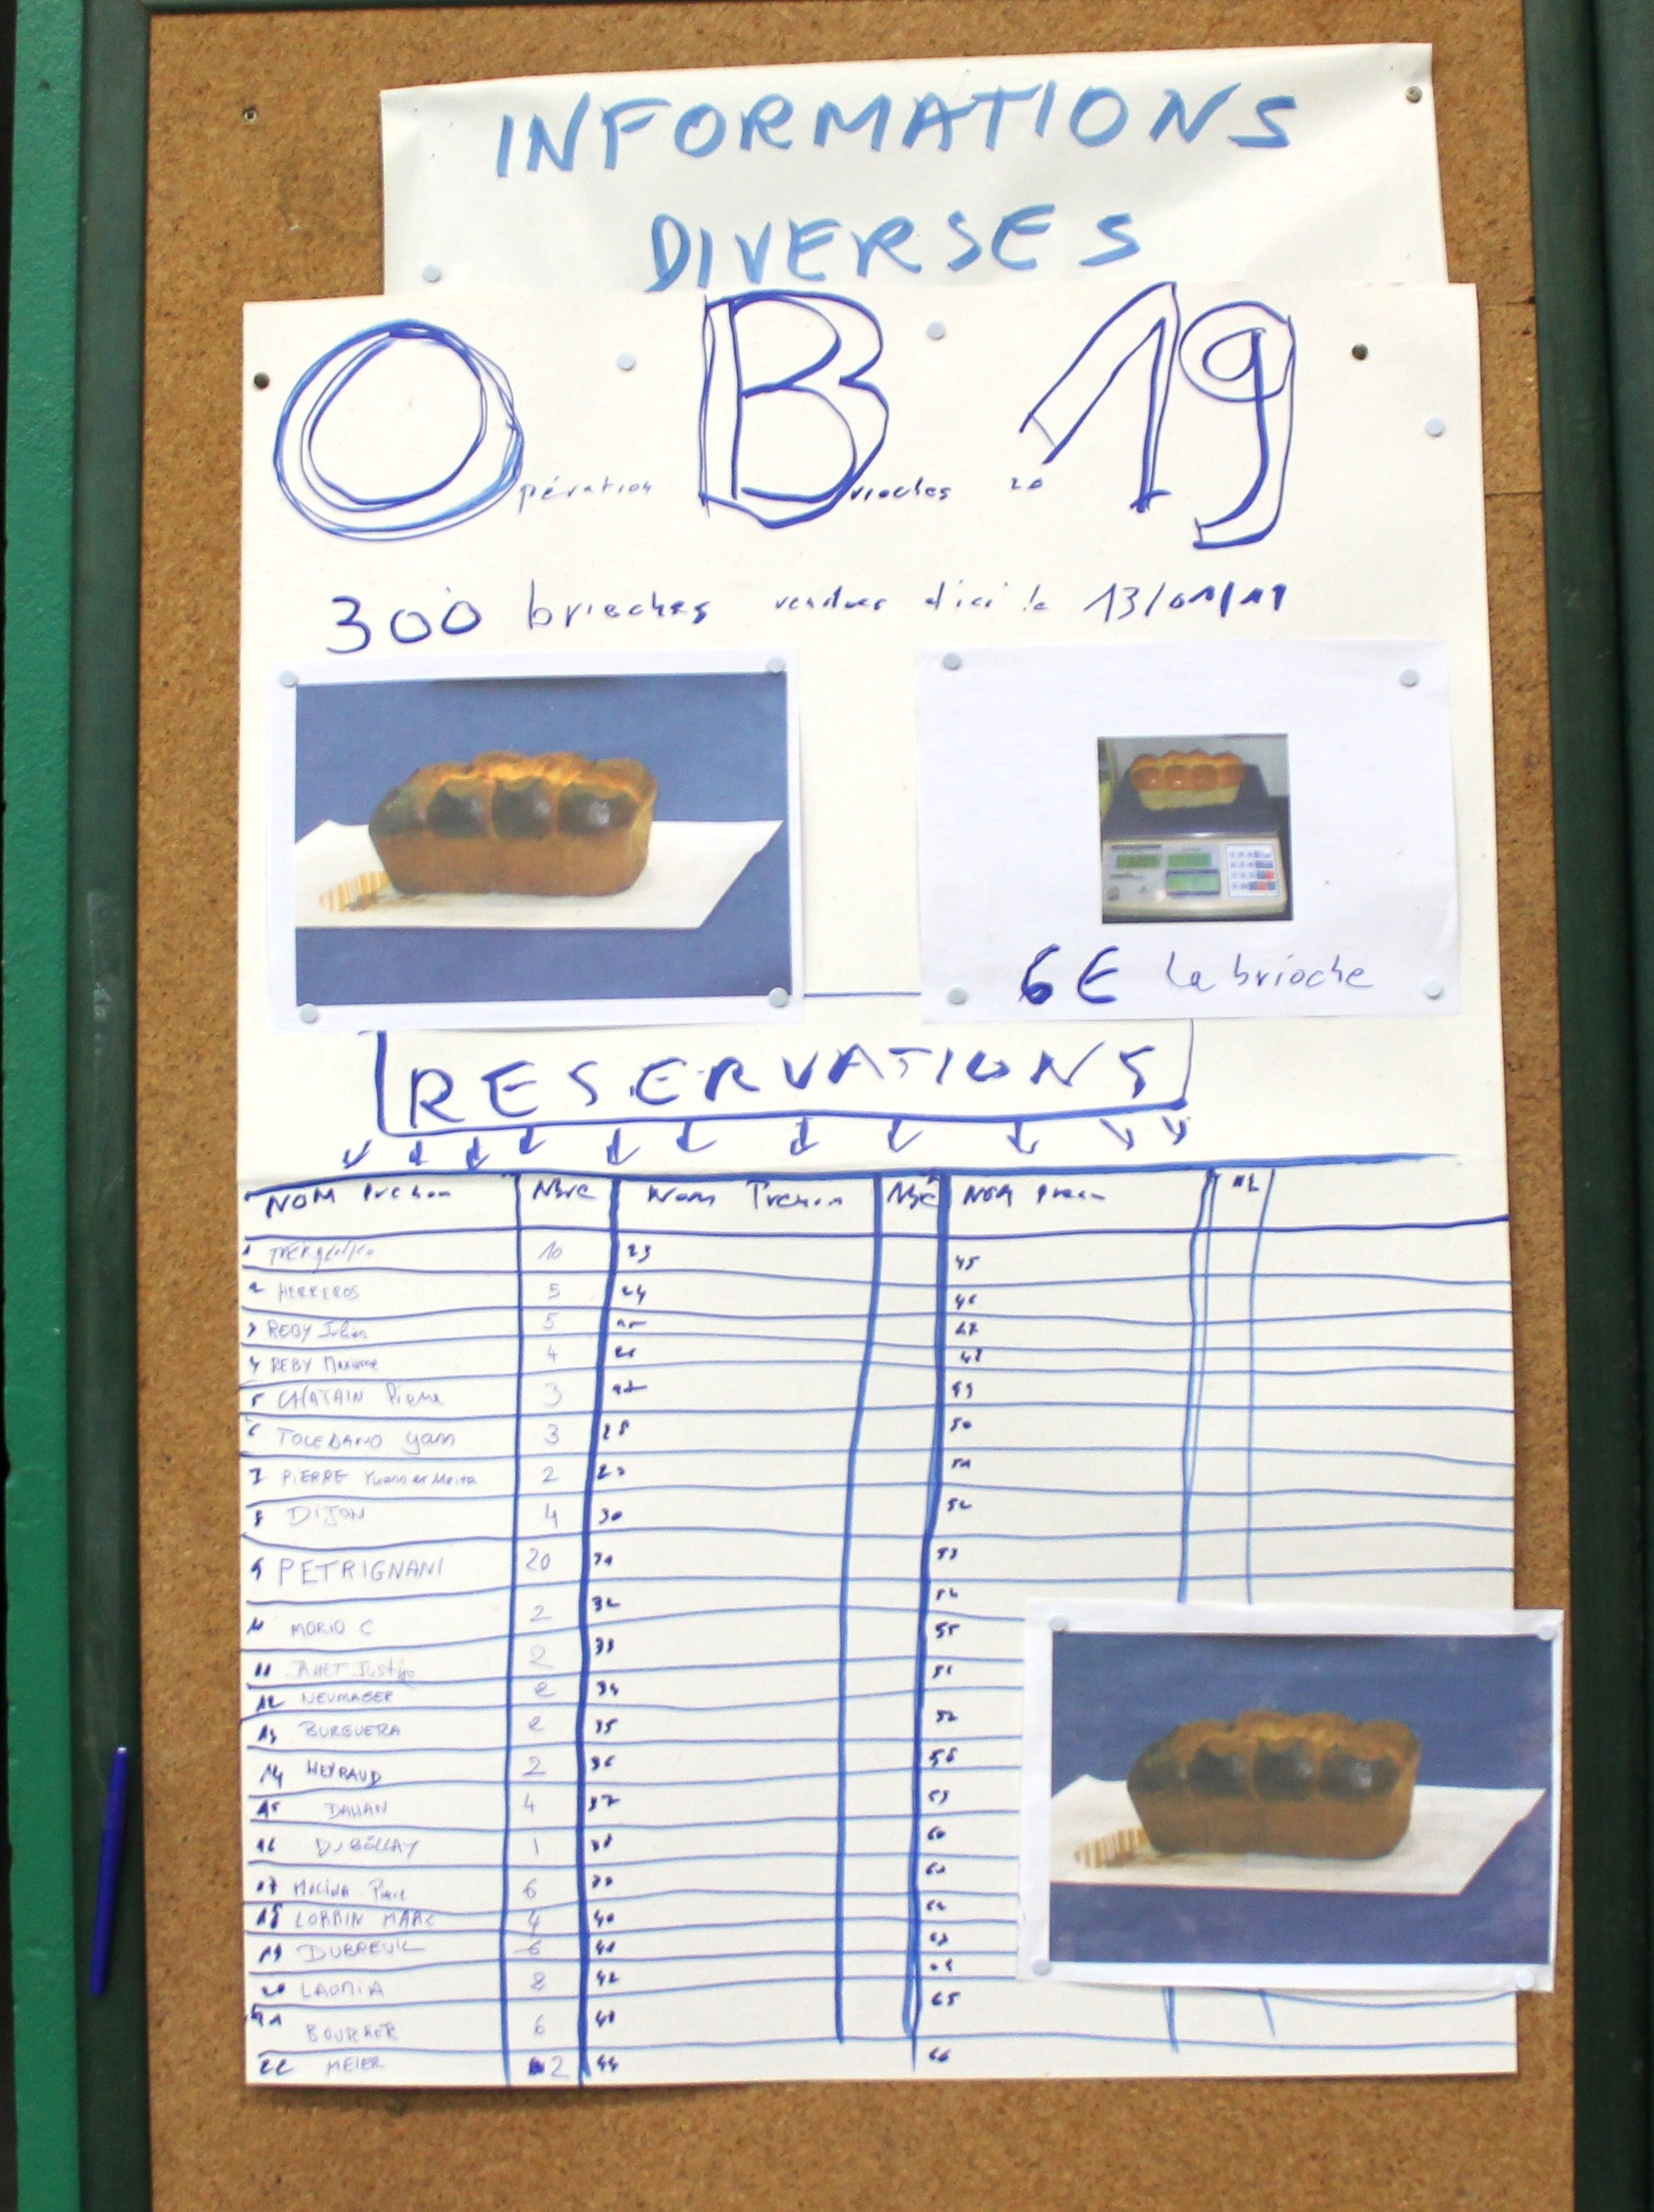 INFORMATIONS
DIVERSES
Opération Brioches 2019
300 brioches vendues d'ici le 13/01/19
6€ la brioche
RESERVATIONS
NOM Prenom Nbre Nom Prenom Nbre NOM Prenom
1 10 23 45
2 HERREROS 5 24 46
3 REBY Julien 5 25 47
4 REBY Maxime 4 26 48
5 CHATAIN Pierre 3 27 49
6 TOLEDANO Yann 3 28 50
7 PIERRE Yuann et Meiva 2 29 51
8 DIJON 4 30 52
9 PETRIGNANI 20 31 53
10 MORIO C 2 32 54
11 2 33 55
12 NEUMAGER 2 34 56
13 BURGUERA 2 35 57
14 HEYRAUD 2 36 58
15 DAHAN 4 37 59
16 DUBOLLAY 1 38 60
17 MOLINA 6 39 61
18 LORRIN MARC 4 40 62
19 DUBREUIL 6 41 63
20 LAOMIA 8 42 64
21 6 43 65
22 MEIER 2 44 66